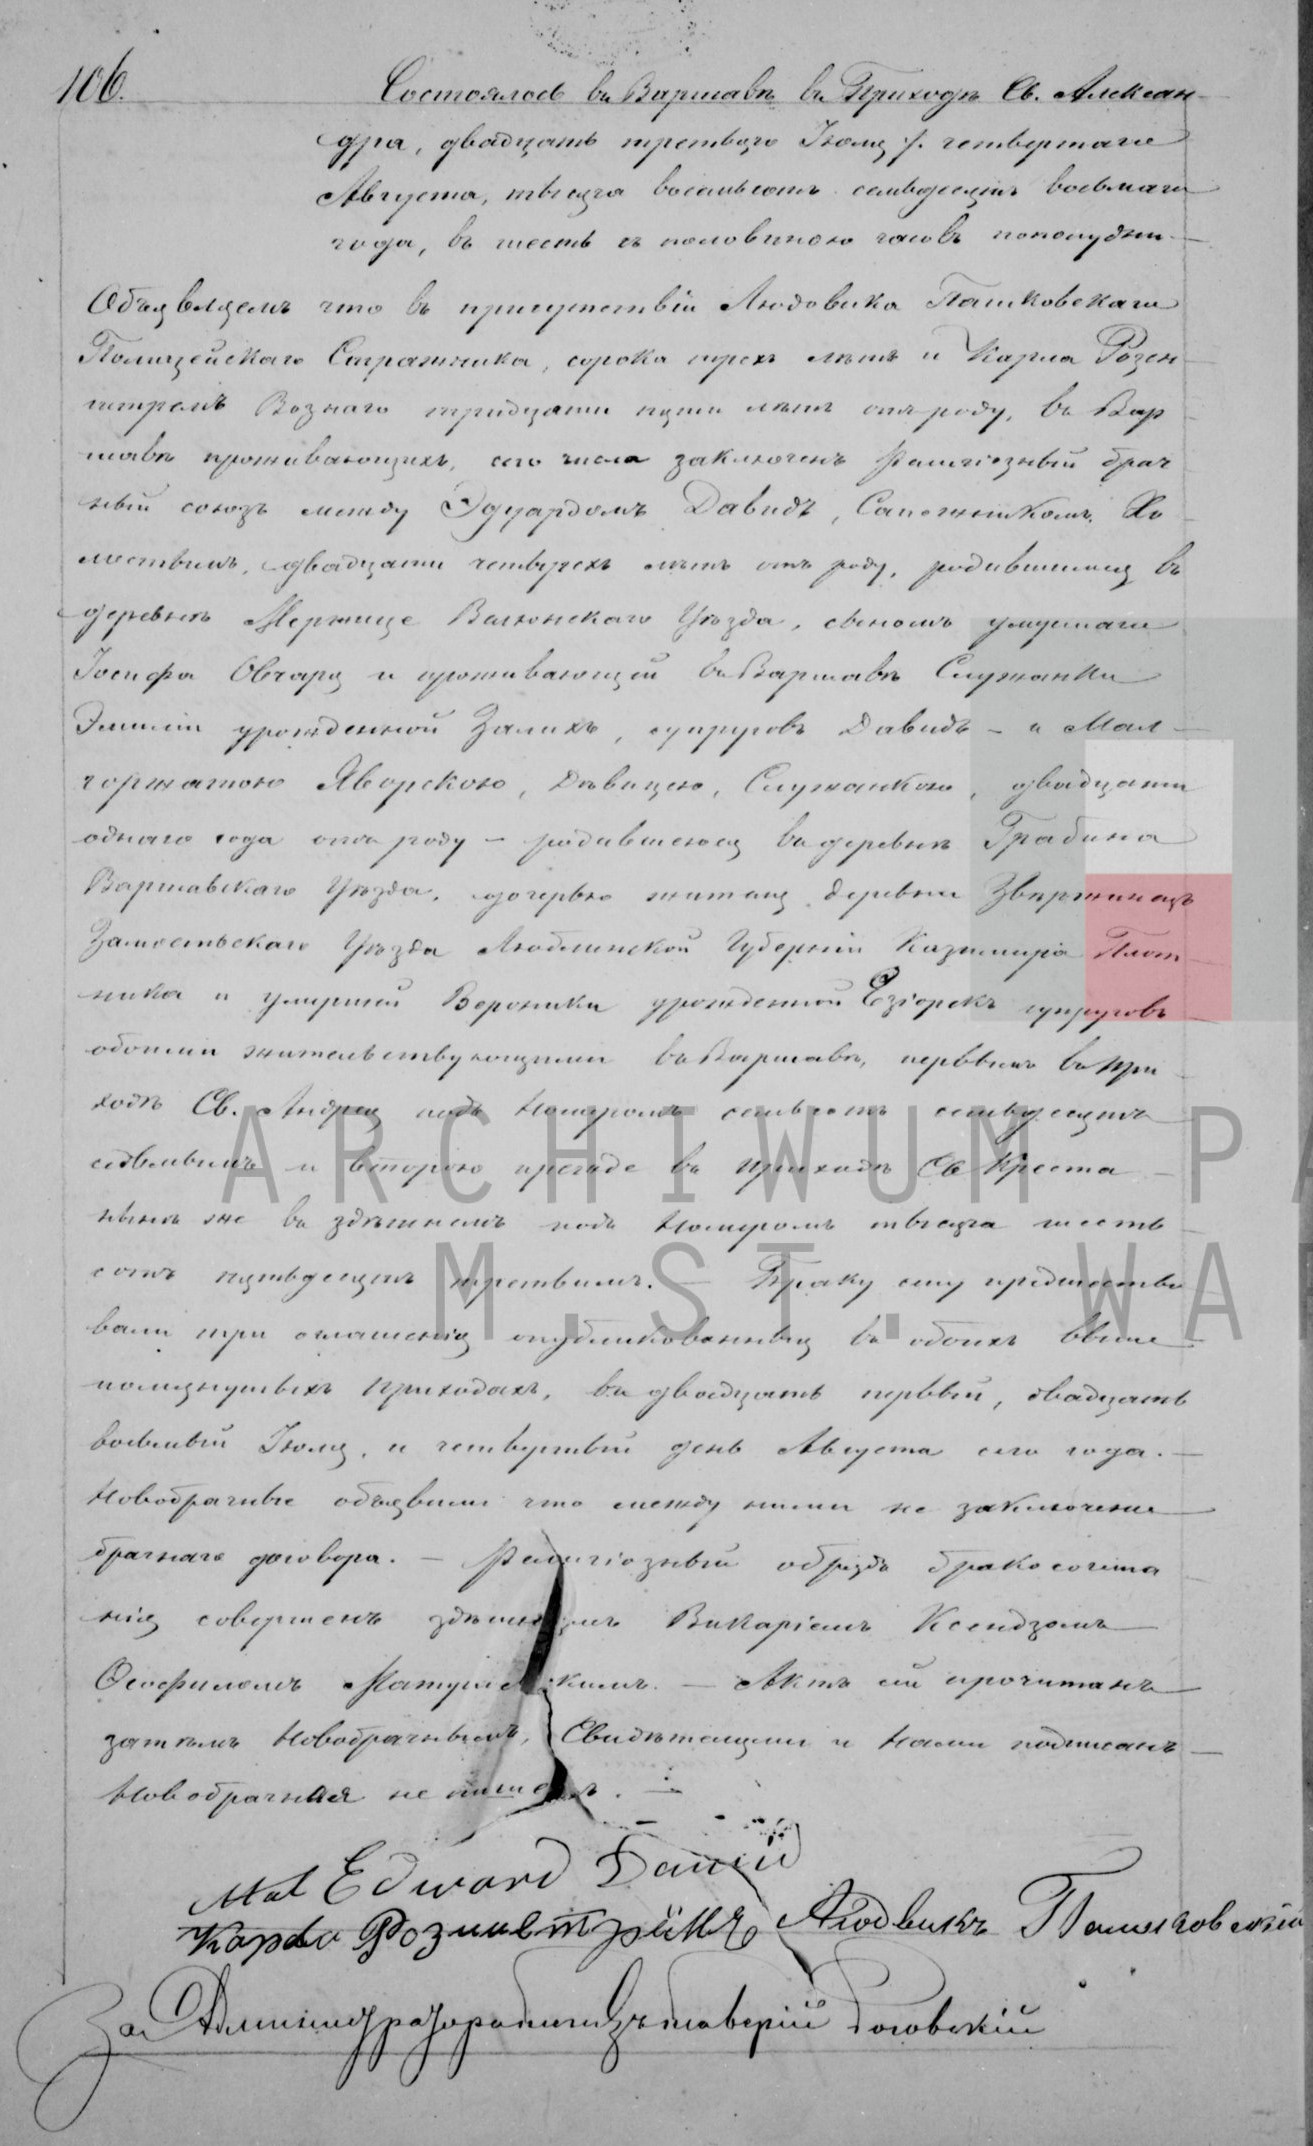 106.
Состоялось въ Варшавѣ въ Приходѣ Св. Алексан-
дра, двадцать третьяго Іюля /. четвертаго
Августа, тысяча восемьсотъ семьдесятъ восьмаго
года, въ шесть съ половиною часовъ пополудни.
Объявляемъ что въ присутствіи Людовика Пашковскаго
Полицейскаго Стражника, сорока трехъ лѣтъ и Карла Розен-
штремъ Вознаго тридцати пяти лѣтъ отъ роду, въ Вар
шавѣ проживающихъ, сего числа заключенъ религіозный брач
ный союзъ между Эдуардомъ Давидъ, Сапожникомъ, Хо
лостымъ, двадцати четырехъ лѣтъ отъ роду, родившимся въ
деревнѣ Мержице Велюнскаго Уѣзда, сыномъ умершаго
Іосифа Овчаря и проживающей въ Варшавѣ Служанки
Эмиліи урожденной Залихъ, супруговъ Давидъ – и Мал-
горжатою Яворскою, Дѣвицею, Служанкою, двадцати
одного года отъ роду – родившеюся въ деревнѣ Грабина
Варшавскаго Уѣзда, дочерью жителя деревни Звѣржинецъ
Замостьскаго Уѣзда Люблинской Губерніи Казимира Плот-
ника и умершей Вероники урожденной Езіорекъ супруговъ
обоими жительствующими въ Варшавѣ, первымъ въ при
ходѣ Св. Андрея подъ Номеромъ семьсотъ семьдесятъ
седьмымъ и второю прежде въ приходѣ Св Креста
нынѣ же въ здѣшнемъ подъ Номеромъ тысяча шесть
сотъ пятьдесятъ третьимъ. – Браку сему предшество
вали три оглашенія опубликованныя въ обоихъ выше
помянутыхъ приходахъ, въ двадцать первый, двадцать
восьмый Іюля, и четвертый день Августа сего года. –
Новобрачные объявили что между ними не заключено
брачнаго договора. – Религіозный обрядъ бракосочета
нія совершенъ здѣшнимъ Викаріемъ Ксендзомъ
Ѳеофиломъ Матушевскимъ. – Актъ сей прочитанъ
затѣмъ Новобрачнымъ, Свидѣтелями и Нами подписанъ –
Новобрачная не пишетъ.
Edward Dawid
Карлъ Людвикъ Пашковскій
За
ARCHIWUM PA
M.ST. WA